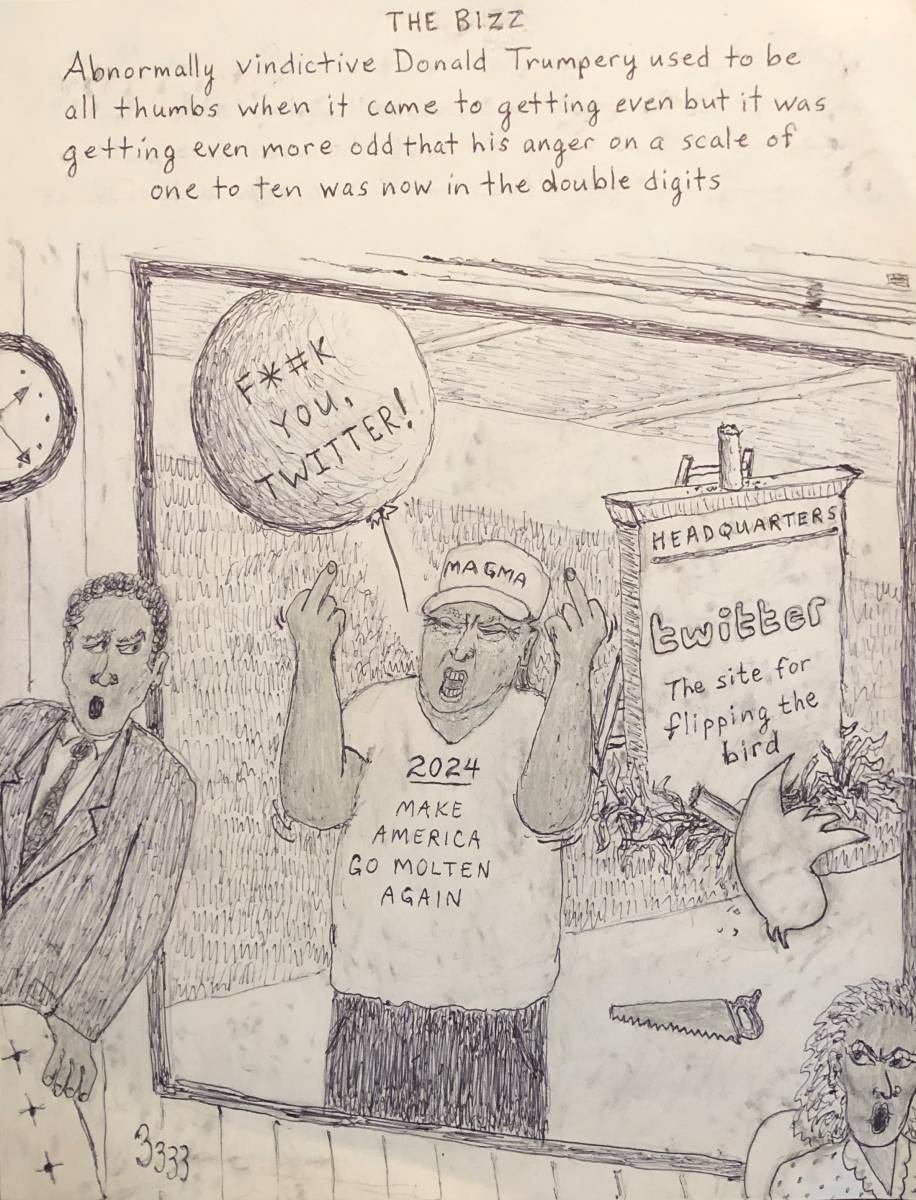 THE BIZZ
Abnormally vindictive Donald Trumpery used to be
all thumbs when it came to getting even but it was
getting even more odd that his anger on a scale of
one to ten was now in the double digits
F*#K
YOU,
TWITTER!
MAGMA
HEADQUARTERS
twitter
The site for
flipping the
bird
2024
MAKE
AMERICA
GO MOLTEN
AGAIN
3333